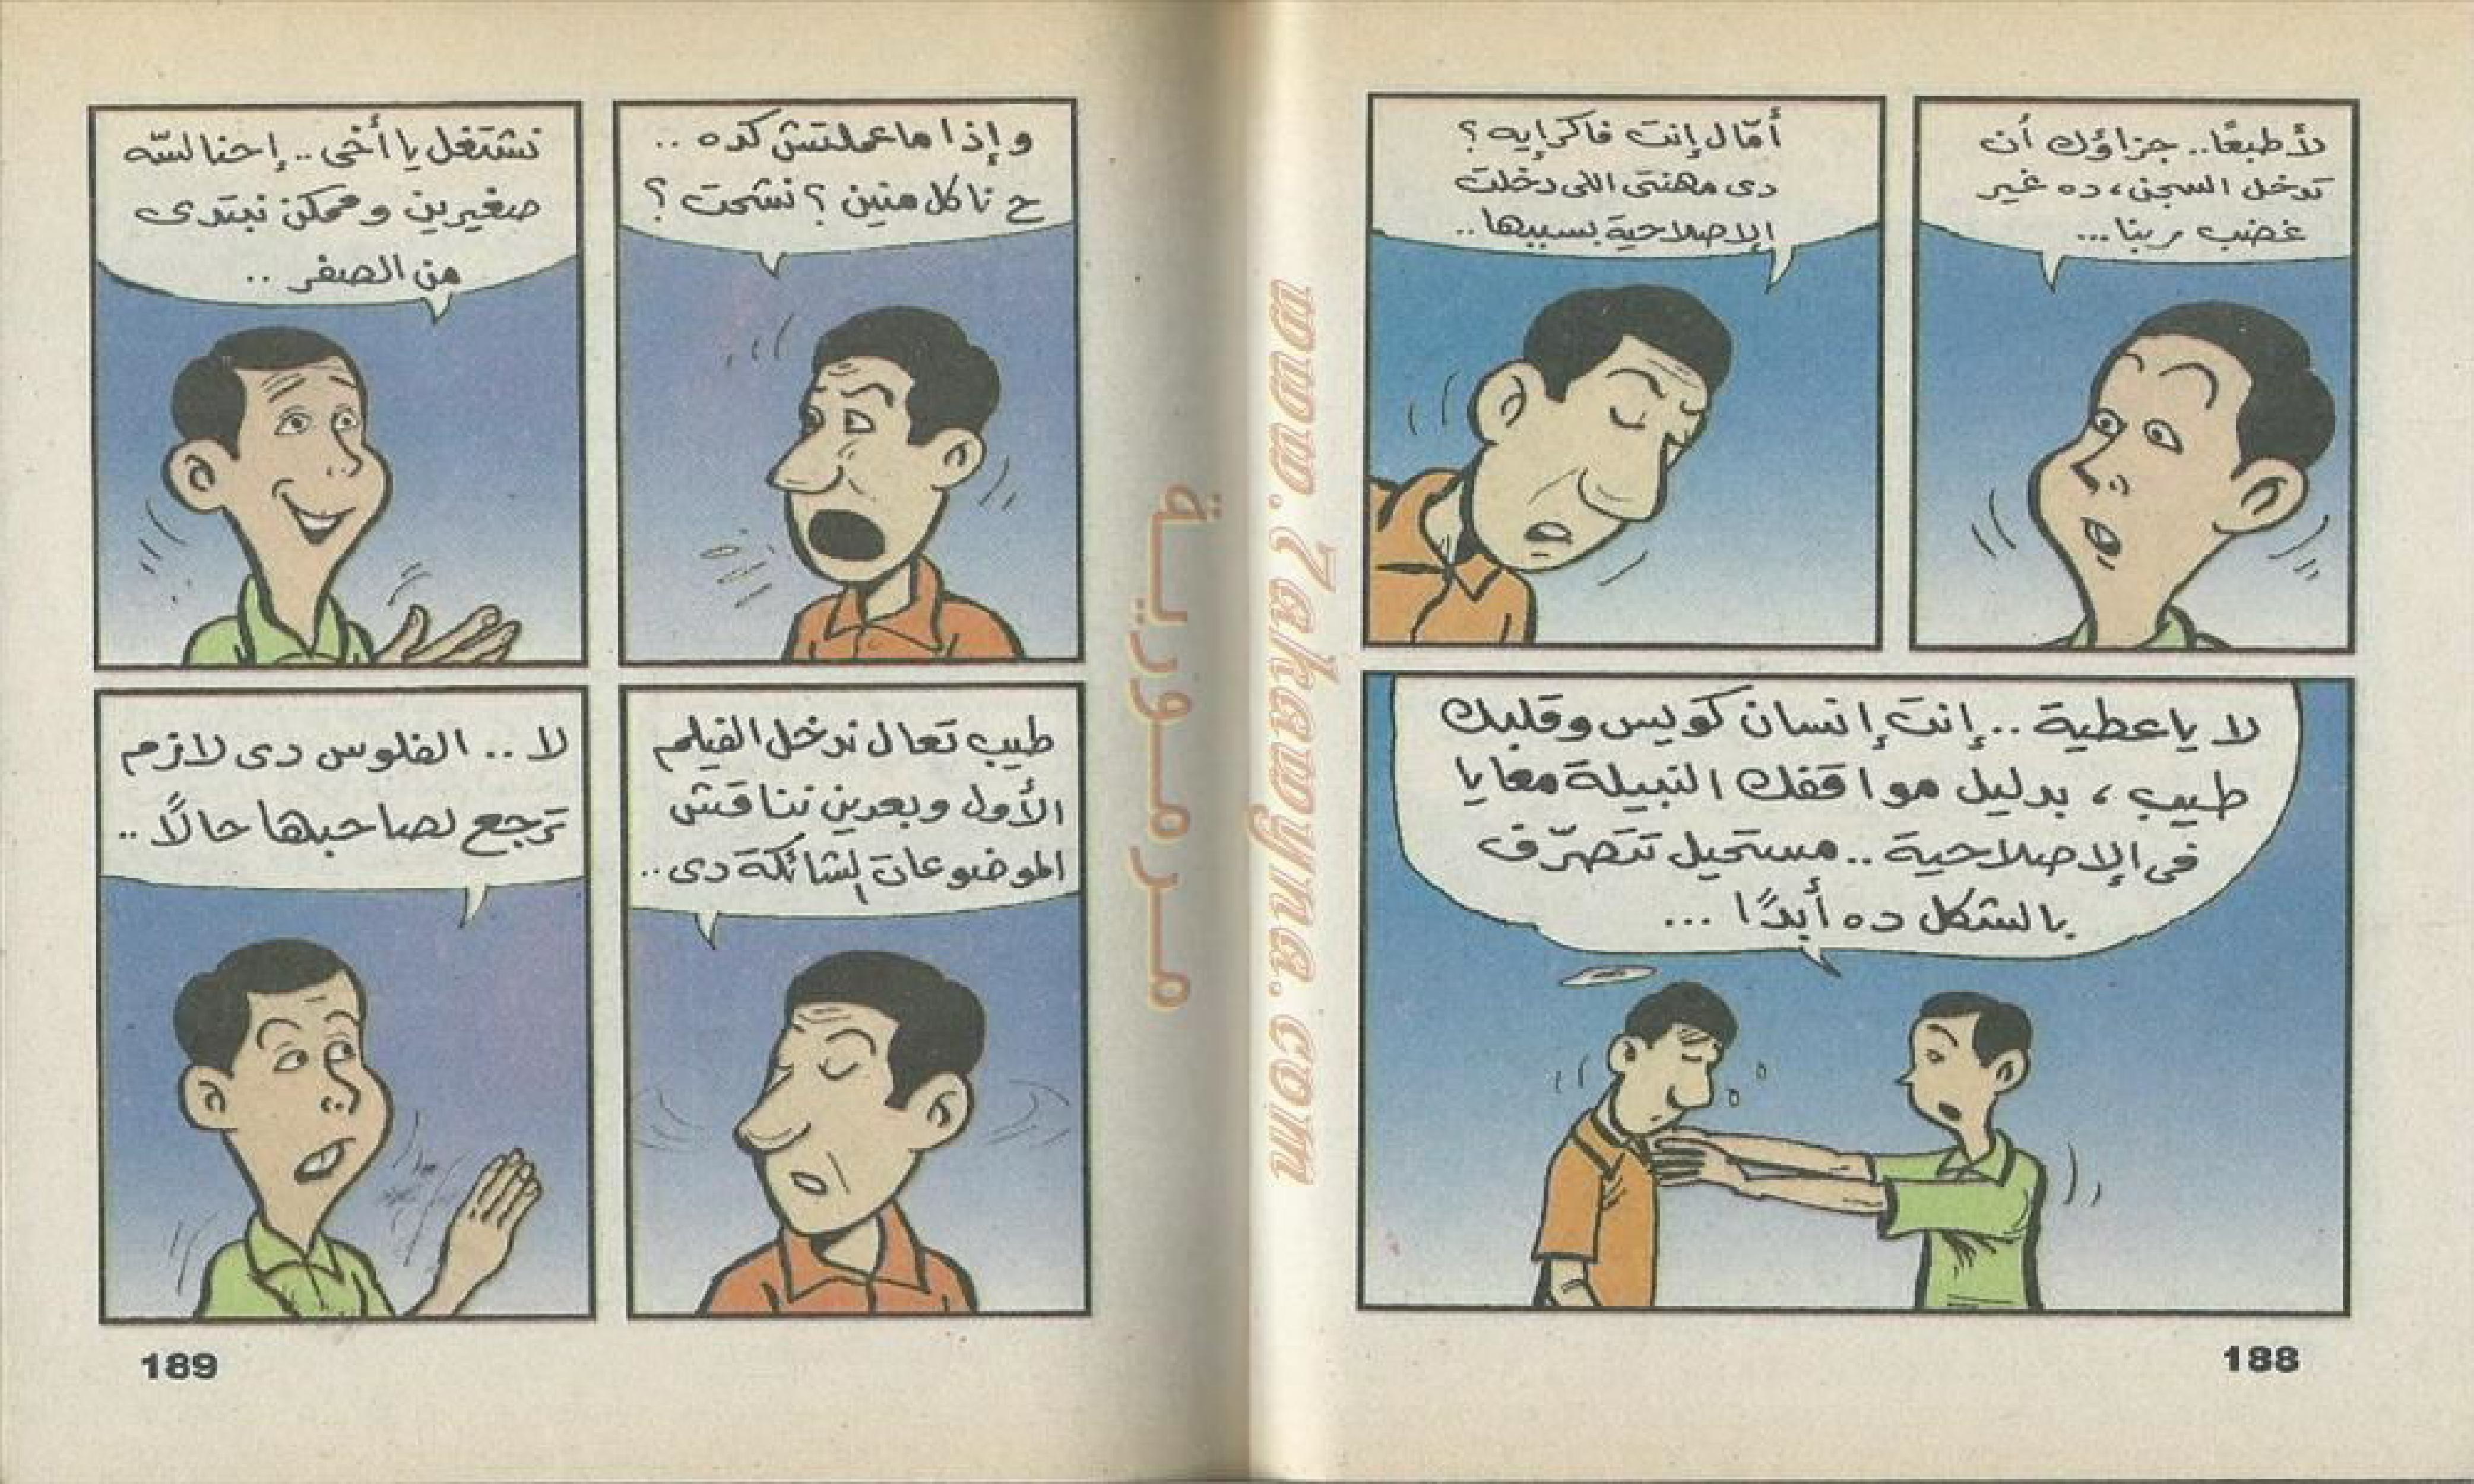 لأ طبعًا.. جزاؤك أن
تدخل السجن، ده غير
غضب ربنا...
أمّال إنت فاكر إيه ؟
دى مهنتى اللى دخلت
الإصلاحية بسببها..
لا يا عطية .. إنت إنسان كويس وقلبك
طيب ، بدليل مواقفك النبيلة معايا
فى الإصلاحية .. مستحيل تتصرّف
بالشكل ده أبدًا ...
188
وإذا ما عملتش كده ..
ح ناكل منين ؟ نشحت ؟
نشتغل يا أخى .. إحنا لسّه
صغيرين وممكن نبتدى
من الصفر ..
طيب تعال ندخل الفيلم
الأول وبعدين نناقش
الموضوعات الشائكة دى ..
لا .. الفلوس دى لازم
ترجع لصاحبها حالًا ..
189
مرمورية
www.7akawyna.com